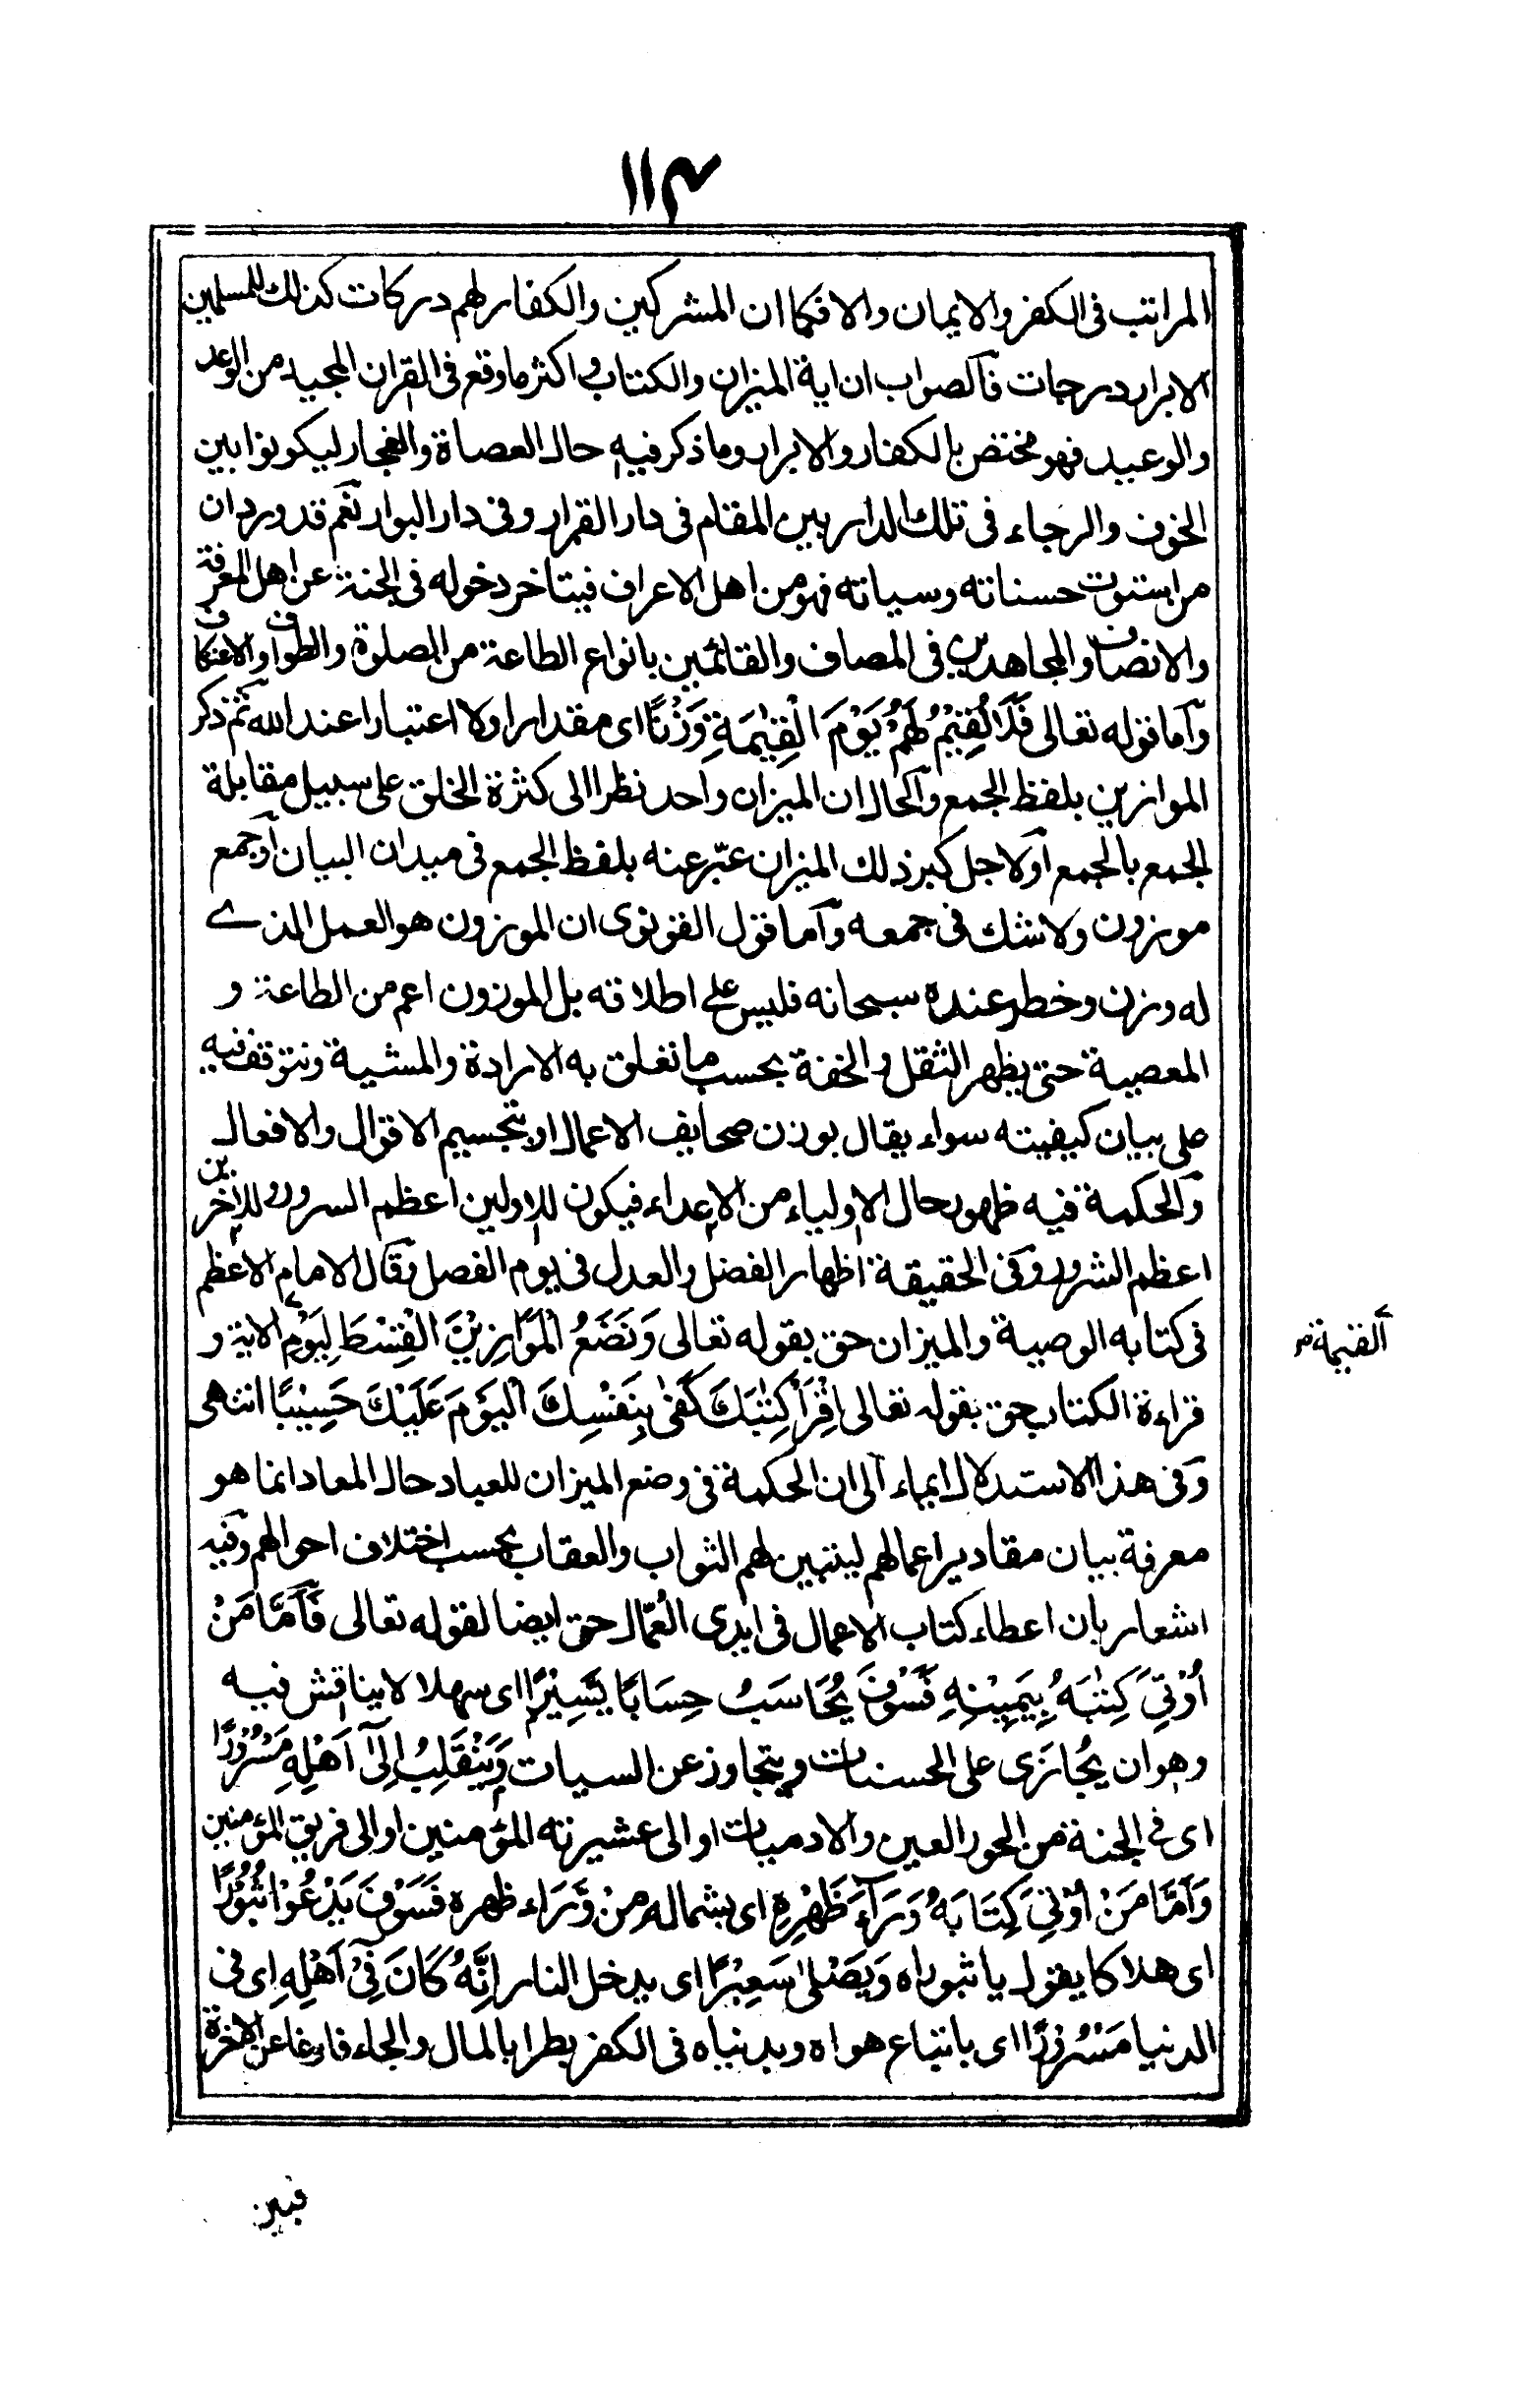 ١١٣
المراتب فى الكفر والايمان والا فكما ان المشركين والكفار لهم دركات كذلك للمسلمين
الابرار درجات فالصواب ان اية الميزان والكتاب و اكثر ما وقع فى القران المجيد من الوعد
والوعيد فهو مختص بالكفار والابرار وما ذكر فيه حال العصاة والفجار ليكونوا بين
الخوف والرجاء فى تلك الدار بين المقام فى دار القرار وفى دار البوار نعم قد ورد ان
من استوت حسناته وسياته فهو من اهل الاعراف فيتاخر دخوله فى الجنة عن اهل المعرفة
والانصاف والمجاهدين فى المصاف والقائمين بانواع الطاعة من الصلوة والطواف والاعتكاف
وَاما قوله تعالى فَلَا نُقِيْمُ لَهُمْ يَوْمَ الْقِيٰمَةِ وَزْنًا اى مقدارا ولا اعتبارا عند الله ثم ذكر
الموازين بلفظ الجمع والحال ان الميزان واحد نظرا الى كثرة الخلق على سبيل مقابلة
الجمع بالجمع اَولاجل كبر ذلك الميزان عبّر عنه بلفظ الجمع فى ميدان البيان اوجمع
موزون ولا شك فى جمعه وَاما قول القونوى ان الموزون هو العمل الذے
له وزن وخطر عنده سبحانه فليس علے اطلاقه بل الموزون اعم من الطاعة و
المعصية حتى يظهر الثقل والخفة بحسب ما تعلق به الارادة والمشية ونتوقف فيه
على بيان كيفيته سواء يقال بوزن صحايف الاعمال او بتجسيم الاقوال والافعال
وَالحكمة فيه ظهور حال الاولياء من الاعداء فيكون للاولين اعظم السرور وللاخرين
اعظم الشرور وَفى الحقيقة اظهار الفضل والعدل فى يوم الفصل وَقال الامام الاعظم
فى كتابه الوصية والميزان حق بقوله تعالى وَنَضَعُ الْمَوَازِيْنَ الْقِسْطَ لِيَوْمِ الاية و
القيمة صـ
قراءة الكتاب حق بقوله تعالى اِقْرَأْ كِتٰبَكَ كَفٰى بِنَفْسِكَ الْيَوْمَ عَلَيْكَ حَسِيْبًا انتهى
وَفى هذا الاستدلال ايماء اَلى ان الحكمة فى وضع الميزان للعباد حال المعاد انما هو
معرفة بيان مقادير اعمالهم ليتبين لهم الثواب والعقاب بحسب اختلاف احوالهم وَفيه
اشعار بان اعطاء كتاب الاعمال فى ايدى العُمّال حق ايضا لقوله تعالى فَاَمَّا مَنْ
اُوْتِىَ كِتٰبَهُ بِيَمِيْنِهِ فَسَوْفَ يُحَاسَبُ حِسَابًا يَّسِيْرًا اى سهلا لا يناقش فيه
وهوان يُجازَى على الحسنات ويتجاوز عن السيات وَيَنْقَلِبُ اِلٰى اَهْلِهٖ مَسْرُوْرًا
اى فى الجنة من الحور العين والادميات او الى عشيرته المؤمنين او الى فريق المؤمنين
وَاَمَّا مَنْ اُوْتِىَ كِتَابَهُ وَرَآءَ ظَهْرِهٖ اى بشماله من وَّرَاء ظهره فَسَوْفَ يَدْعُوْا ثُبُوْرًا
اى هلاكا يقول يا ثبوراه وَيَصْلٰى سَعِيْرًا اى يدخل النار اِنَّهُ كَانَ فِىْ اَهْلِهٖ اى فى
الدنيا مَسْرُوْرًا اى باتباع هواه وبدنياه فى الكفر بطرا بالمال والجاه فارغا عن الاخرة
فبين